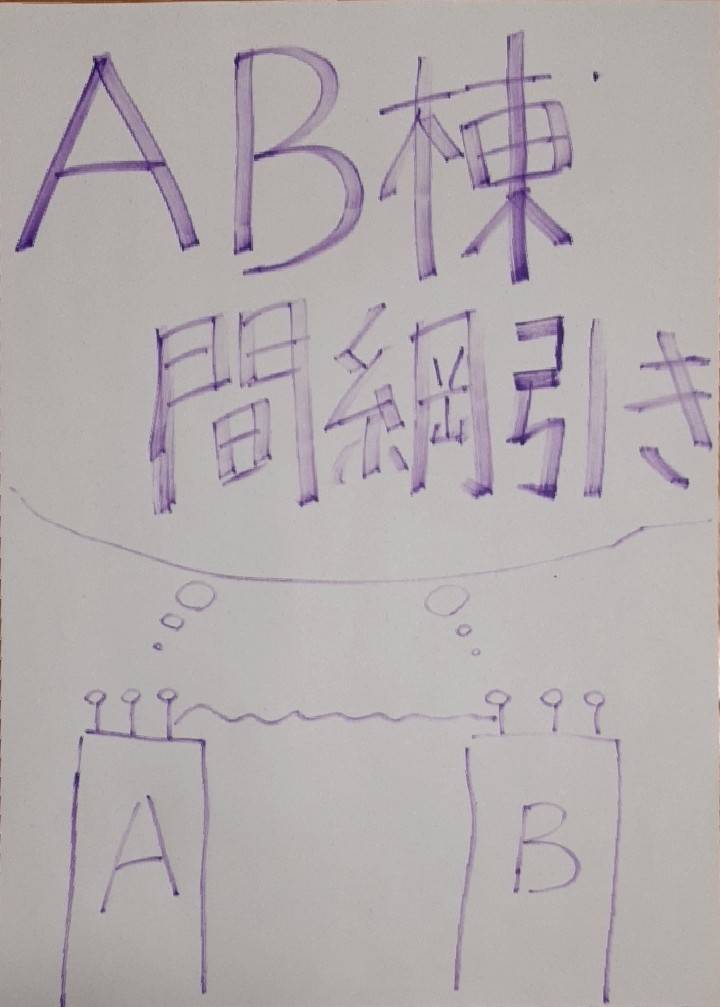 AB棟
間綱引き
A
B